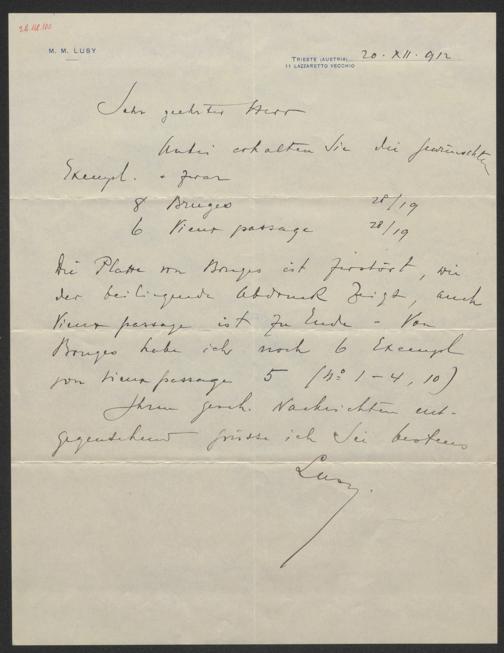 M. M. LUSY
TRIESTE (AUSTRIA) 20 · XII · 912
11 LAZZARETTO VECCHIO
Sehr geehrter Herr
Anbei erhalten Sie die gewünschten
Exempl. & zwar
8 Bruges 28/19
6 Vieux passage 28/19
Die Platte von Bruges ist zerstört, wie
der beiliegende Abdruck zeigt, auch
Vieux passage ist zu Ende - Von
Bruges habe ich noch 6 Exempl
von vieux passage 5 (Nº 1 - 4, 10)
Ihren gesch. Nachrichten ent-
gegensehend grüsse ich Sie bestens
Lusy.